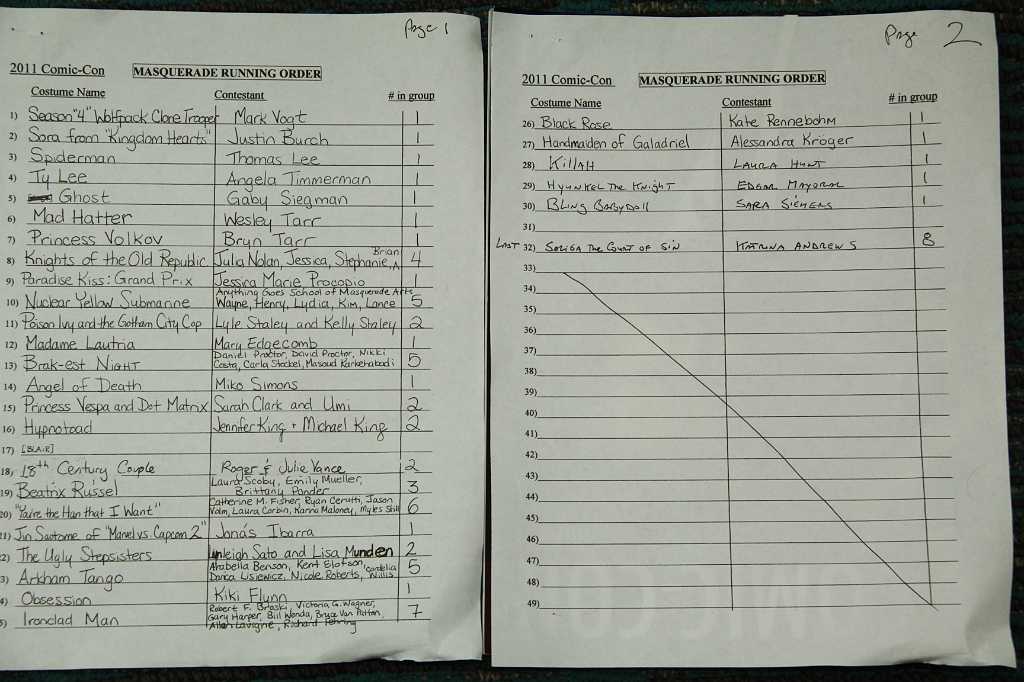 Page 1
2011 Comic-Con MASQUERADE RUNNING ORDER
Costume Name Contestant # in group
1) Season "4" Wolfpack Clone Trooper Mark Vogt 1
2) Sora from "Kingdom Hearts" Justin Burch 1
3) Spiderman Thomas Lee 1
4) Ty Lee Angela Timmerman 1
5) Ghost Gaby Siegman 1
6) Mad Hatter Wesley Tarr 1
7) Princess Volkov Bryn Tarr 1
8) Knights of the Old Republic Julia Nolan, Jessica, Stephanie, Brian 4
9) Paradise Kiss: Grand Prix Jessica Marie Procopio 1
Anything Goes School of Masquerade Arts
10) Nuclear Yellow Submarine Wayne, Henry, Lydia, Kim, Lance 5
11) Poison Ivy and the Gotham City Cop Lyle Staley and Kelly Staley 2
12) Madame Lautria Mary Edgecomb 1
Daniel Proctor, David Proctor, Nikki
13) Brak-est Night Costa, Carla Stockel, Masoud Karkehabadi 5
14) Angel of Death Miko Simons 1
15) Princess Vespa and Dot Matrix Sarah Clark and Umi 2
16) Hypnotoad Jennifer King + Michael King 2
17) [BLAIR]
18) 18th Century Couple Roger & Julie Vance 2
Laura Scoby, Emily Mueller,
19) Beatrix Russel Brittany Ponder 3
Catherine M. Fisher, Ryan Ceruth, Jason
20) "You're the Han that I Want" Valm, Laura Corbin, Karina Maloney, Myles Shill 6
21) Jin Saotome of "Marvel vs. Capcom 2" Jonas Ibarra 1
2) The Ugly Stepsisters Unleigh Sato and Lisa Munden 2
Arabella Benson, Kent Elofson, Cordelia
3) Arkham Tango Darica Lisiewicz, Nicole Roberts, Willis 5
4) Obsession Kiki Flynn 1
Robert F. Braski, Victoria G. Wagner,
5) Ironclad Man Gary Harper, Bill Wonda, Bryce Van Patton, 7
Allan Lavigne, Richard Fehring
Page 2
2011 Comic-Con MASQUERADE RUNNING ORDER
Costume Name Contestant # in group
26) Black Rose Kate Rennebohm 1
27) Handmaiden of Galadriel Alessandra Kröger 1
28) Killah LAURA HUNT 1
29) Hyunkel The Knight EDGAR MAYORAL 1
30) Bling Babydoll SARA SIEMENS 1
31)
LAST 32) Seriga The Count of Sin KATRINA ANDREWS 8
33)
34)
35)
36)
37)
38)
39)
40)
41)
42)
43)
44)
45)
46)
47)
48)
49)